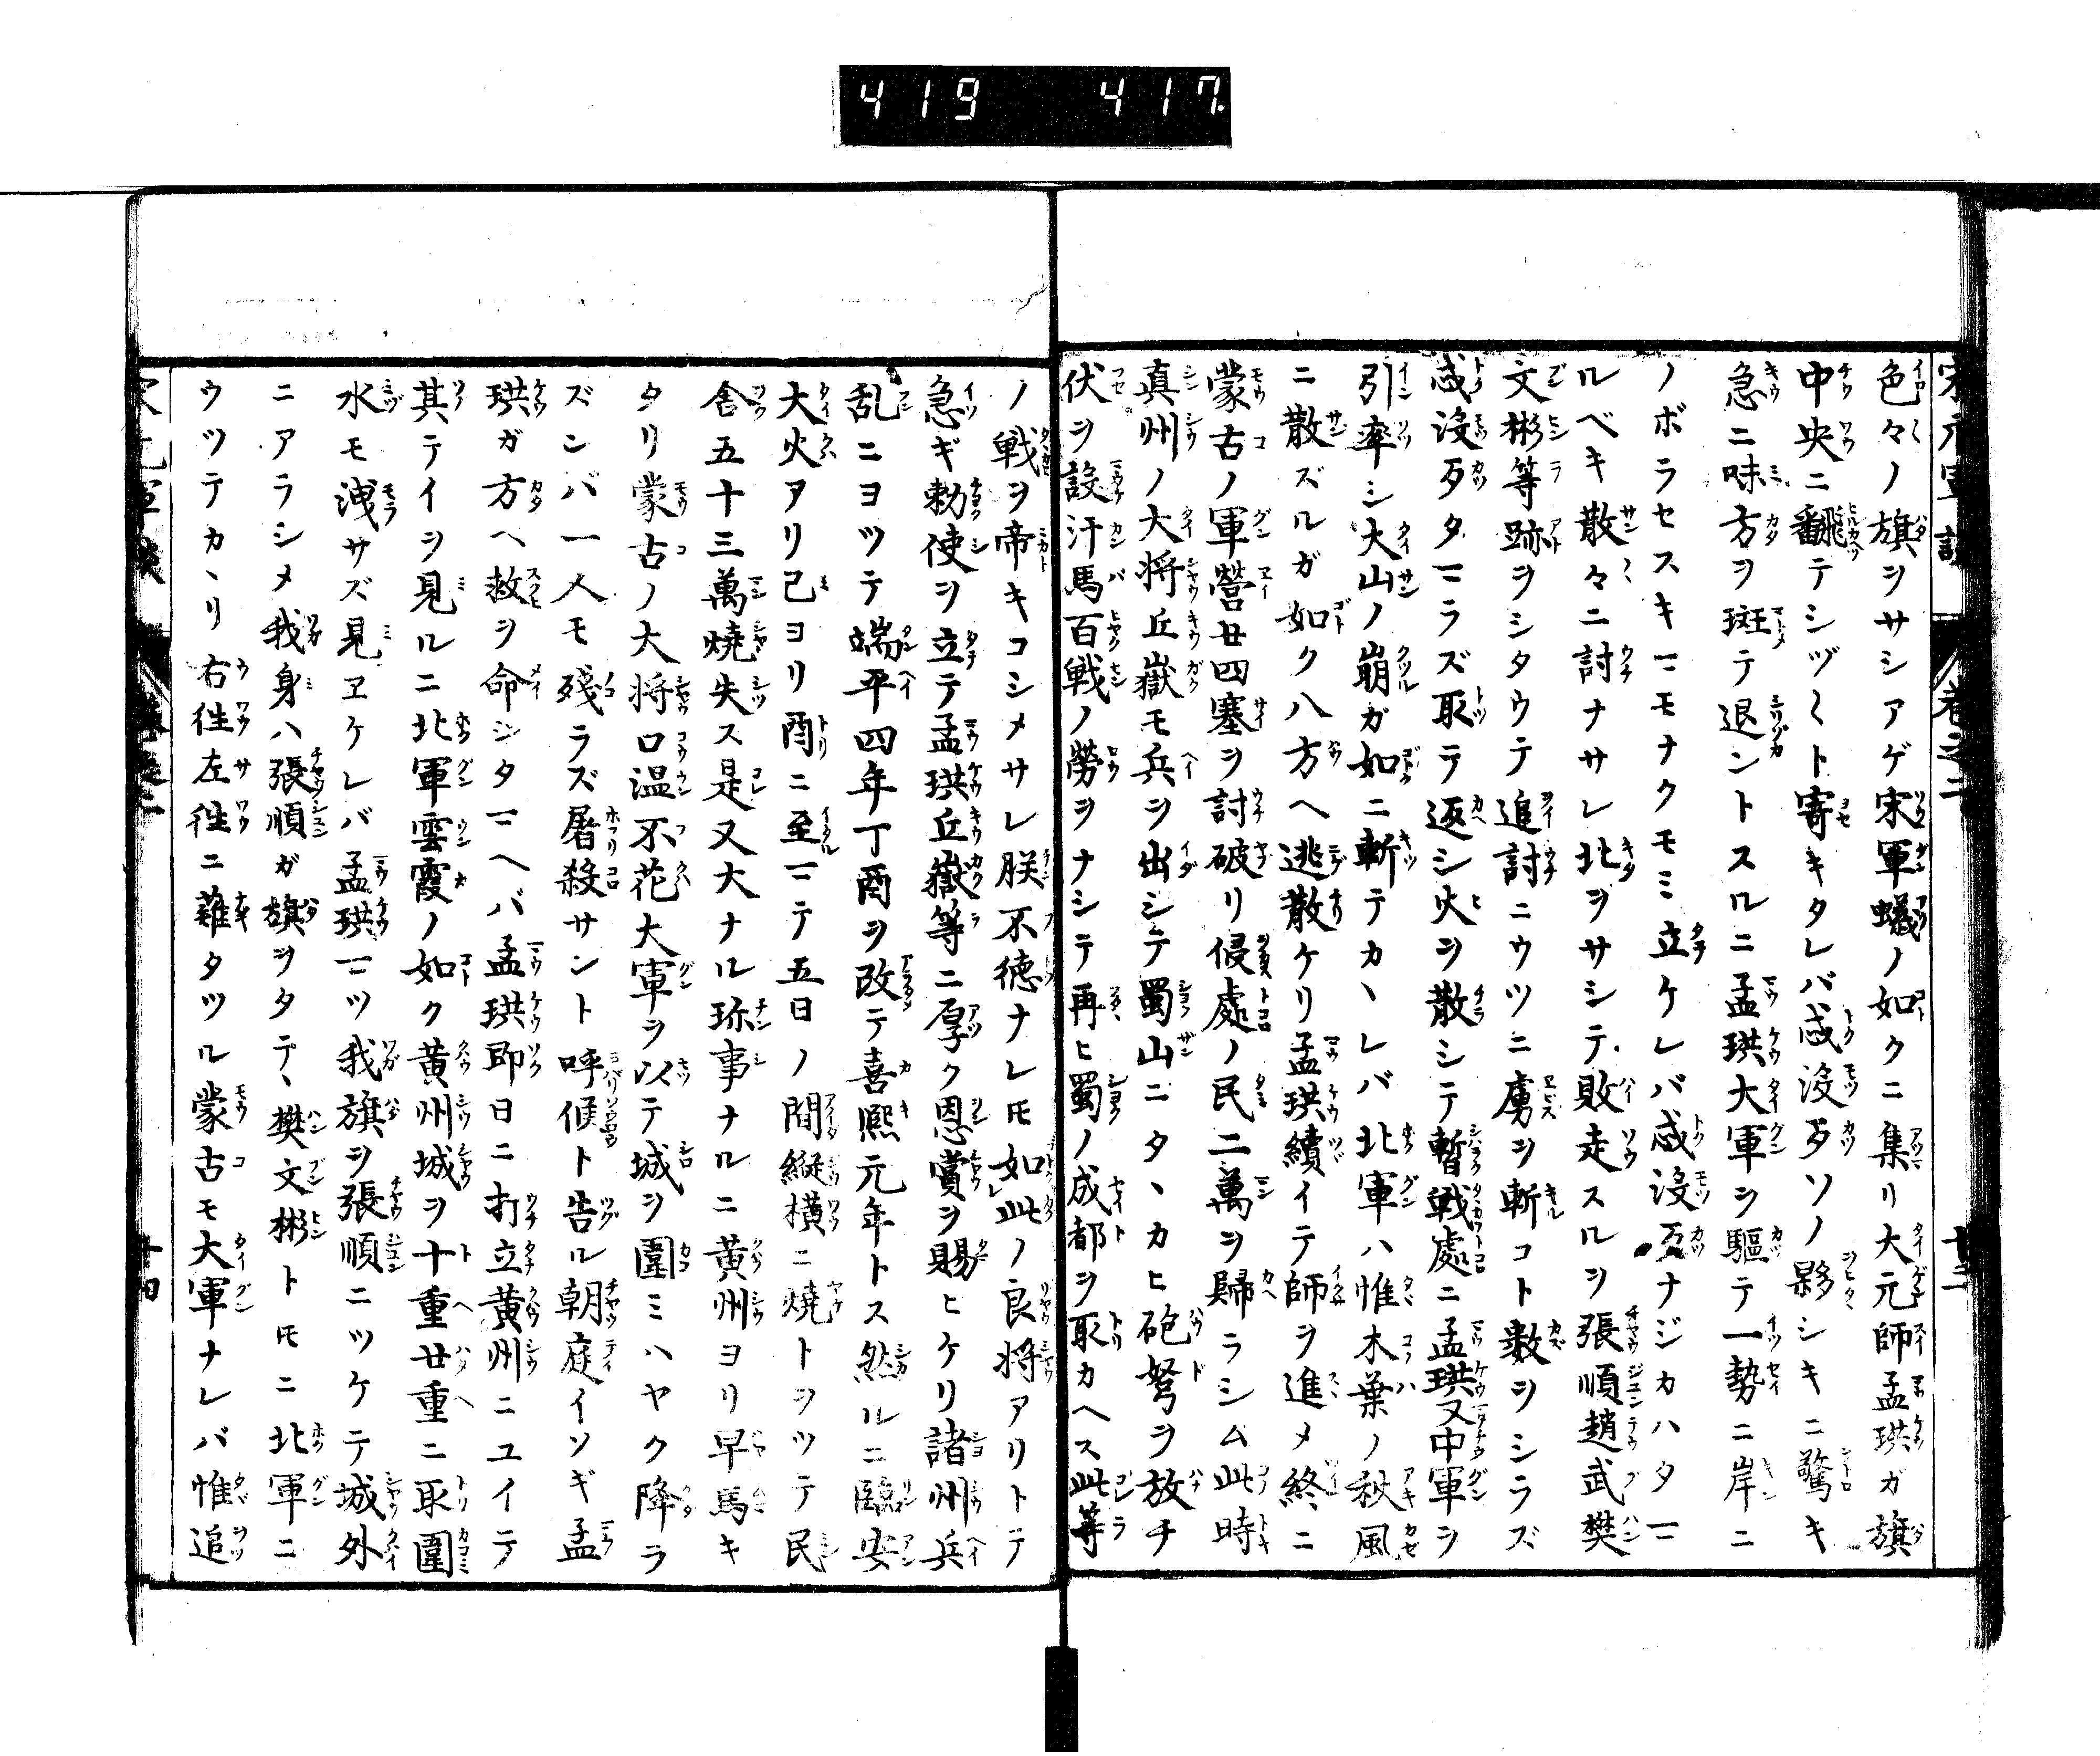 419 417
色々ノ旗ヲサシアゲ宋軍蟻ノ如クニ集リ大元師孟珙ガ旗
中央ニ飜テシヅ〱ト寄キタレバ忒没歹ソノ夥シキニ驚キ
急ニ味方ヲ斑テ退ントスルニ孟珙大軍ヲ驅テ一勢ニ岸ニ
ノボラセスキマモナクモミ立ケレバ忒没歹ナジカハタマ
ルベキ散々ニ討ナサレ北ヲサシテ敗走スルヲ張順趙武樊
文彬等跡ヲシタウテ追討ニウツニ虜ヲ斬コト数ヲシラズ
忒没歹タマラズ取テ返シ火ヲ散シテ暫戦處ニ孟珙又中軍ヲ
引率シ大山ノ崩ガ如ニ斬テカヽレバ北軍ハ惟木葉ノ秋風
ニ散ズルガ如ク八方ヘ逃散ケリ孟珙續イテ師ヲ進メ終ニ
蒙古ノ軍營廿四塞ヲ討破リ侵處ノ民二萬ヲ歸ラシム此時
真州ノ大将丘嶽モ兵ヲ出シテ蜀山ニタヽカヒ砲弩ヲ放チ
伏ヲ設汗馬百戦ノ勞ヲナシテ再ヒ蜀ノ成都ヲ取カヘス此等
ノ戦ヲ帝キコシメサレ朕不徳ナレ𪜈如此ノ良将アリトテ
急ギ勅使ヲ立テ孟珙丘嶽等ニ厚ク恩賞ヲ賜ヒケリ諸州兵
乱ニヨツテ端平四年丁酉ヲ改テ喜熈元年トス然ルニ臨安
大火アリ巳ヨリ酉ニ至マテ五日ノ間縦横ニ燒トヲツテ民
舎五十三萬燒失ス是又大ナル珎事ナルニ黄州ヨリ早馬キ
タリ蒙古ノ大将口温不花大軍ヲ以テ城ヲ圍ミハヤク降ラ
ズンバ一人モ殘ラズ屠殺サント呼候ト告ル朝庭イソギ孟
珙ガ方ヘ救ヲ命シタマヘバ孟珙即日ニ打立黄州ニユイテ
其テイヲ見ルニ北軍雲霞ノ如ク黄州城ヲ十重廿重ニ取圍
水モ洩サズ見ヱケレバ孟珙マツ我旗ヲ張順ニツケテ城外
ニアラシメ我身ハ張順ガ旗ヲタテヽ樊文彬ト𪜈ニ北軍ニ
ウツテカヽリ右徃左徃ニ薙タツル蒙古モ大軍ナレバ惟追